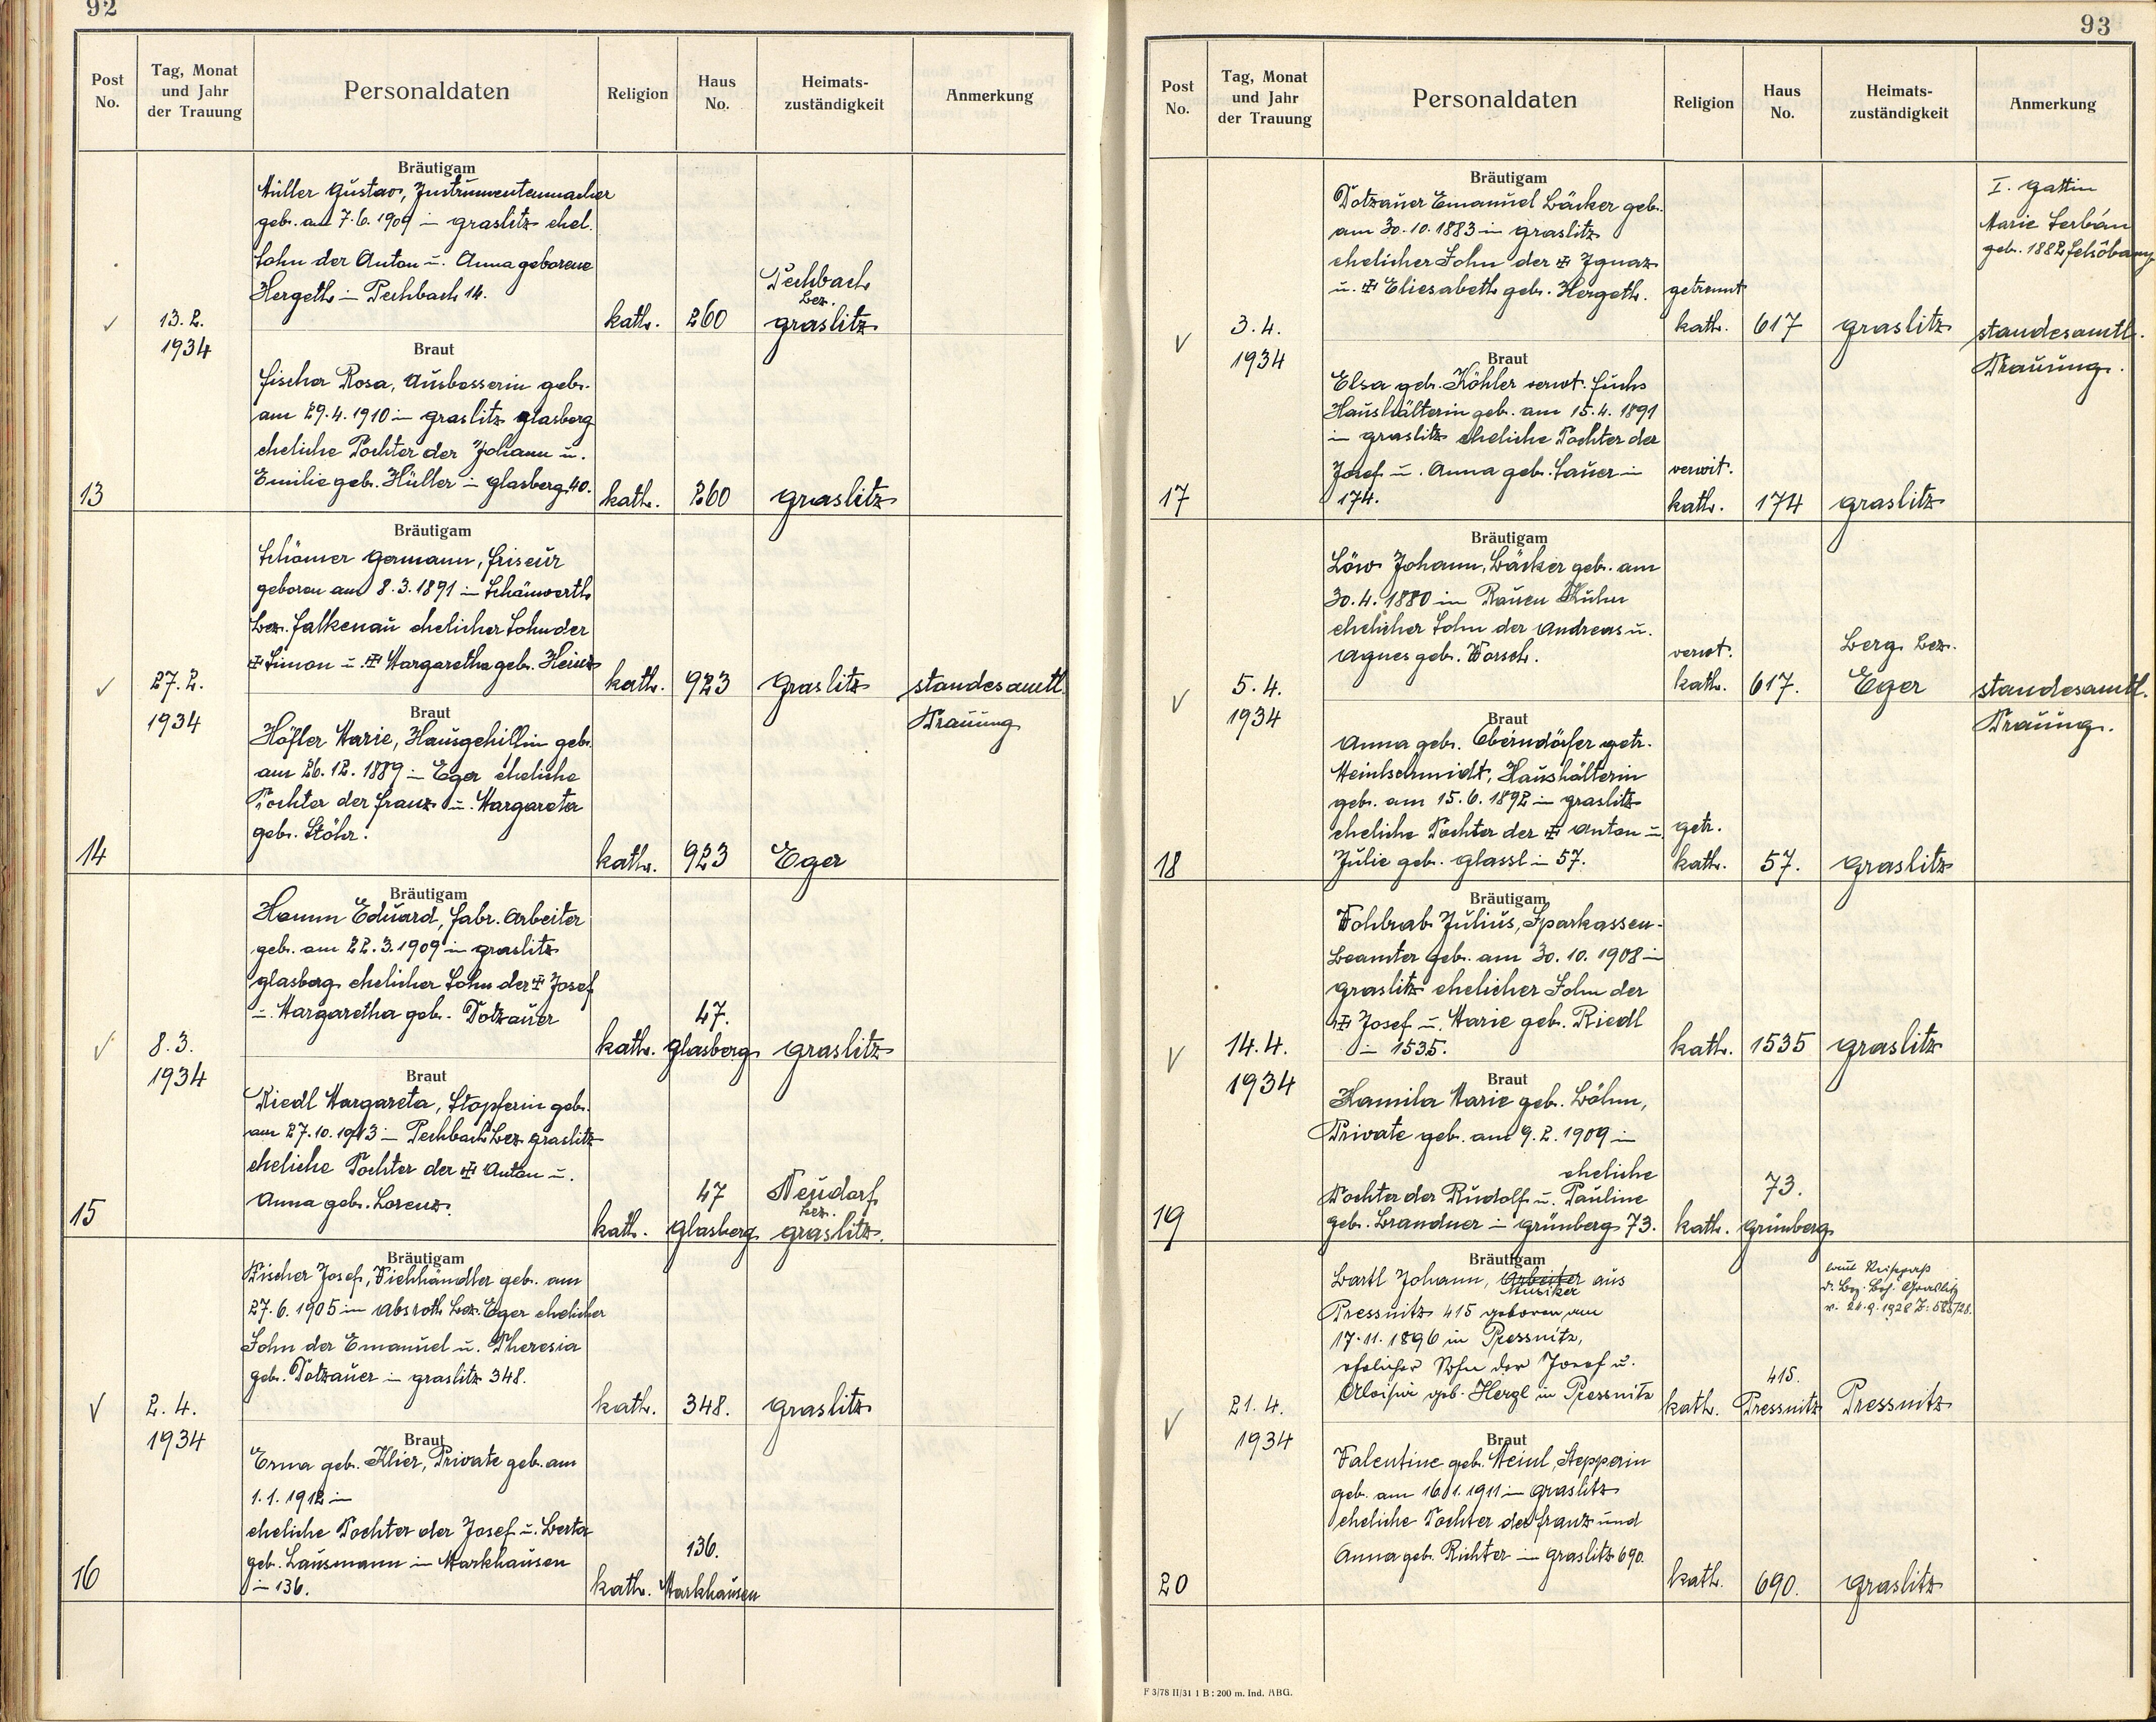 92
Post No.
Tag, Monat und Jahr der Trauung
Personaldaten
Religion
Haus No.
Heimats-zuständigkeit
Anmerkung
Bräutigam
Müller Gustav, Instrumentenmacher
geb. am 7.6.1909 in Graslitz ehel.
Sohn der Anton u. Anna geborene
Hergeth in Pechbach 14.
13.2.
1934
kath.
260
Pechbach
bez.
Graslitz
Braut
Fischer Rosa, Ausbesserin geb.
am 29.4.1910 in Graslitz Glasberg
eheliche Tochter der Johann u.
Emilie geb. Hüller in Glasberg 40.
13
kath.
260
Graslitz
Bräutigam
Germann, Friseur
geboren am 8.3.1891 in Schönwerth
Bez. Falkenau ehelicher Sohn der
Simon u. Margaretha geb. Heinz
27.2.
1934
kath.
923
Graslitz
standesamtl.
Trauung
Braut
Höfler Marie, Hausgehilfin geb.
am 26.12.1889 in Eger eheliche
Tochter der Franz u. Margareta
geb. Stöhr.
14
kath.
923
Eger
Bräutigam
Hamm Eduard, Fabr. Arbeiter
geb. am 22.3.1909 in Graslitz
Glasberg ehelicher Sohn der Josef
u. Margaretha geb. Dotzauer
8.3.
1934
kath.
47.
Glasberg
Graslitz
Braut
Riedl Margareta, Stopferin geb.
am 27.10.1913 in Pechbach Bez. Graslitz
eheliche Tochter der Anton u.
Anna geb. Lorenz.
15
kath.
47
Glasberg
Neudorf
bez.
Graslitz.
Bräutigam
Fischer Josef, Viehhändler geb. am
27.6.1905 in Absroth Bez. Eger ehelicher
Sohn der Emanuel u. Theresia
geb. Dotzauer in Graslitz 348.
2.4.
1934
kath.
348.
Graslitz
Braut
Erna geb. Klier, Private geb. am
1.1.1912 in
eheliche Tochter der Josef u. Berta
geb. Lausmann in Markhausen
in 136.
16
kath.
136.
Markhausen
93
Post No.
Tag, Monat und Jahr der Trauung
Personaldaten
Religion
Haus No.
Heimats-zuständigkeit
Anmerkung
Bräutigam
Dotzauer Emanuel Bäcker geb.
am 30.10.1883 in Graslitz
ehelicher Sohn der Ignaz
u. Eliesabeth geb. Hergeth.
3.4.
1934
getrennt
kath.
617
Graslitz
I. Gattin
Marie Serbán
geb. 1882 Felsöbany
standesamtl.
Trauung.
Braut
Elsa geb. Köhler verwt. Fuchs
Haushälterin geb. am 15.4.1891
in Graslitz eheliche Tochter der
Josef u. Anna geb. Sauer in
174.
17
verwit.
kath.
174
Graslitz
Bräutigam
Löw Johann, Bäcker geb. am
30.4.1880 in Rauen Kulm
ehelicher Sohn der Andreas u.
Agnes geb. Worsch.
5.4.
1934
verwt.
kath.
617.
Berg Bez.
Eger
standesamtl.
Trauung.
Braut
Anna geb. Oberndörfer getr.
Meinlschmidt, Haushälterin
geb. am 15.6.1892 in Graslitz
eheliche Tochter der Anton u.
Julie geb. Glassl in 57.
18
getr.
kath.
57.
Graslitz
Bräutigam
Wohlrab Julius, Sparkassen-
beamter geb. am 30.10.1908 in
Graslitz ehelicher Sohn der
Josef u. Marie geb. Riedl
in 1535.
14.4.
1934
kath.
1535
Graslitz
Braut
Kamila Marie geb. Böhm,
Private geb. am 9.2.1909 in
eheliche
Tochter der Rudolf u. Pauline
geb. Brandner in Grünberg 73.
19
kath.
73.
Grünberg
Bräutigam
Bartl Johann, Arbeiter aus
Musiker
Pressnitz 415 geboren am
17.11.1896 in Pressnitz,
ehelicher Sohn der Josef u.
Aloisia geb. Hergl in Pressnitz
21.4.
1934
kath.
415.
Pressnitz
laut Reisepass
d. Bez. Beh. Graslitz
v. 24.9.1928
Pressnitz
Braut
Valentine geb. Meinl, Stepperin
geb. am 16.1.1911 in Graslitz
eheliche Tochter des Franz und
Anna geb. Richter in Graslitz 690.
20
kath.
690.
Graslitz
F 3/78 II/31 1 B : 200 m. Ind. ABG.